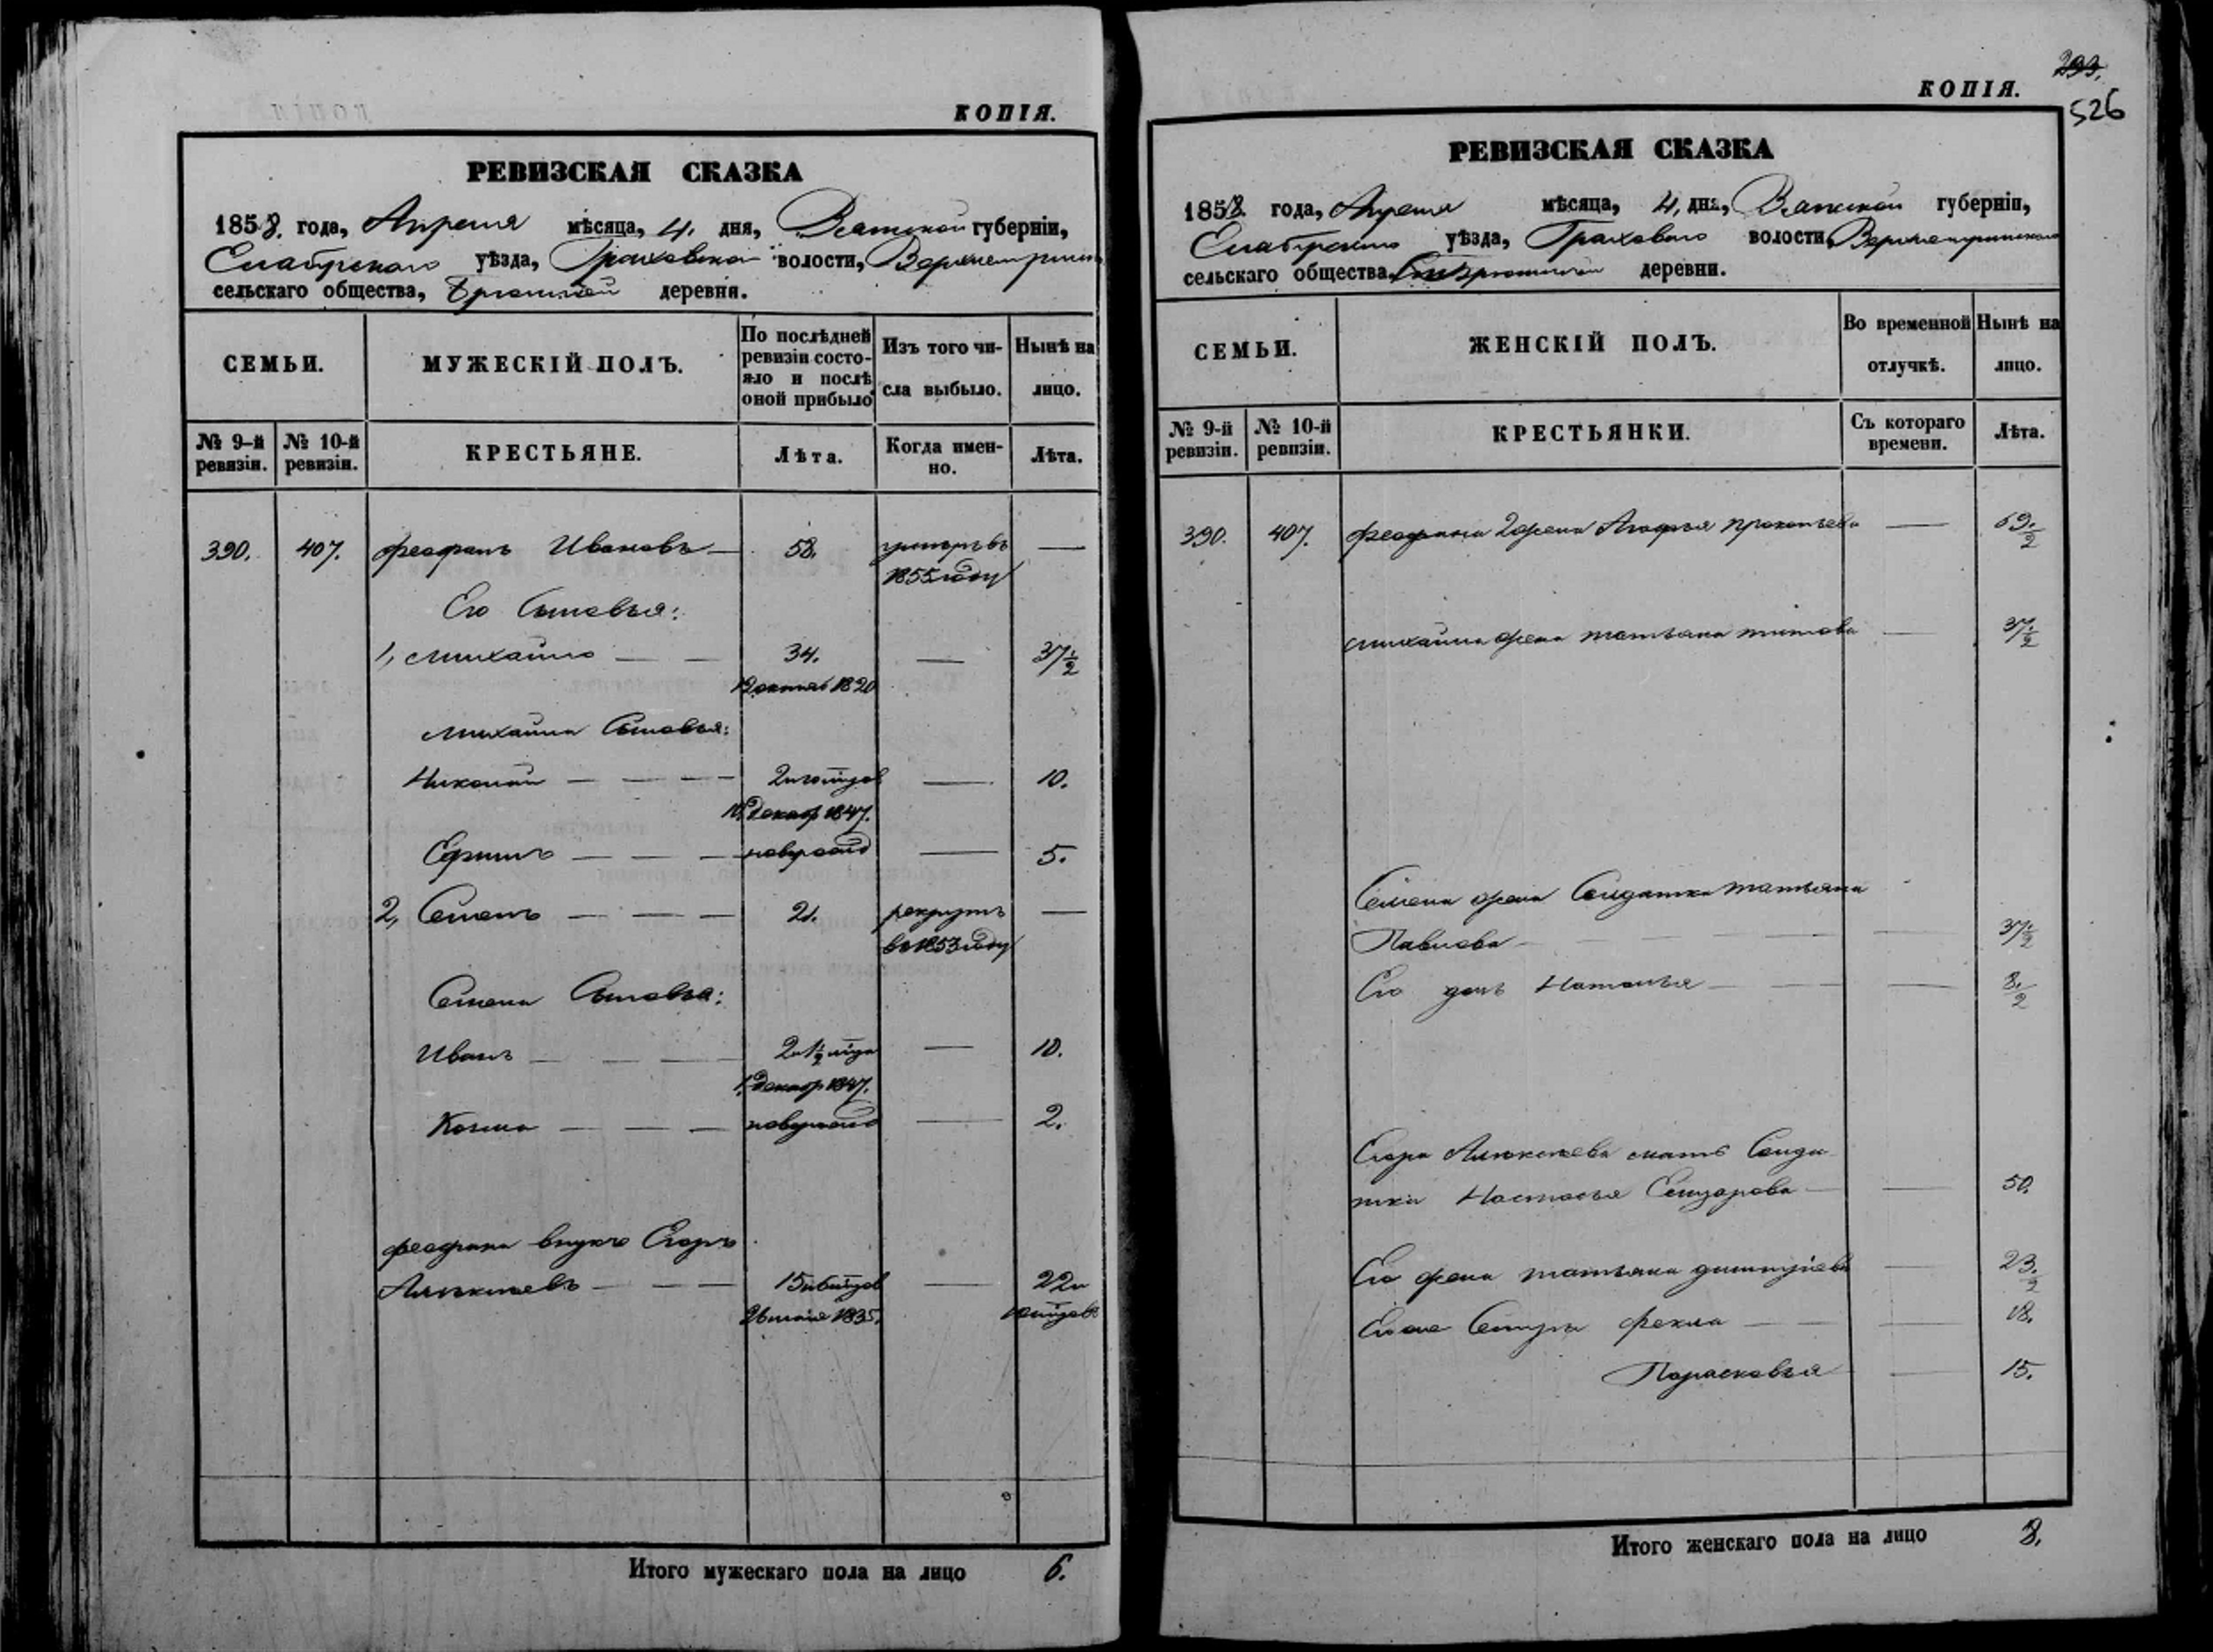 КОПІЯ.
РЕВИЗСКАЯ СКАЗКА
1858. года, Апреля мѣсяца, 4. дня, Вятской губерніи,
Елабугскаго уѣзда, Граховской волости,
сельскаго общества, деревня.
СЕМЬИ.
МУЖЕСКІЙ ПОЛЪ.
По послѣдней
ревизіи состо-
яло и послѣ
оной прибыло
Изъ того чи-
сла выбыло.
Нынѣ на
лицо.
№ 9-й
ревизіи.
№ 10-й
ревизіи.
КРЕСТЬЯНЕ.
Лѣта.
Когда имен-
но.
Лѣта.
390. 407. Феофанъ Ивановъ — 58. умеръ въ —
1855 году
Его Сыновья:
1, Михайло — — 34. — 37 1/2
1820
Михайла Сыновья:
Николай — — — — 10.
Декаб 1847.
Ефимъ — — — — 5.
2, Семенъ — — — 21. рекрутъ —
въ 1853 году
Семена Сыновья:
Иванъ — — — 2 и 1/2 — 10.
Декабр 1847.
Козма — — — — 2.
Феофана внукъ Егоръ
Алексѣевъ — — — 15 и 6 — 22 и
26 мая 1835.
Итого мужескаго пола на лицо 6.
293.
КОПІЯ.
526
РЕВИЗСКАЯ СКАЗКА
1858. года, Апреля мѣсяца, 4, дня, Вятской губерніи,
Елабугскаго уѣзда, волости,
сельскаго общества, деревни.
СЕМЬИ.
ЖЕНСКІЙ ПОЛЪ.
Во временной
отлучкѣ.
Нынѣ на
лицо.
№ 9-й
ревизіи.
№ 10-й
ревизіи.
КРЕСТЬЯНКИ.
Съ котораго
времени.
Лѣта.
390. 407. Феофана 2 жена Агафья Прокопьева —
Михайла жена Татьяна Титова — 37 1/2
Семена жена Солдатка Татьяна
Павлова — — — — 37 1/2
Его дочь Наталья — — —
Егора Алексѣева мать Солда
тка Настасья — 50.
Его жена Татьяна —
Его же Сестры Фекла — — — 18.
Парасковья — 15.
Итого женскаго пола на лицо 8.